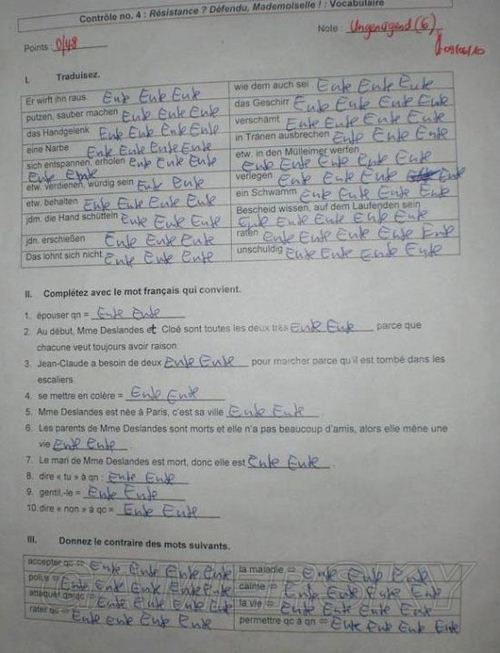 Contrôle no. 4 : Résistance ? Défendu, Mademoiselle ! : Vocabulaire
Note : Ungenügend (6)
Points : 0/48
I. Traduisez.
Er wirft ihn raus. Ente Ente Ente
wie dem auch sei Ente Ente Ente
putzen, sauber machen Ente Ente Ente Ente
das Geschirr Ente Ente Ente Ente
das Handgelenk Ente Ente Ente Ente
verschämt Ente Ente Ente Ente
eine Narbe Ente Ente Ente Ente
in Tränen ausbrechen Ente Ente Ente
sich entspannen, erholen Ente Ente Ente
Ente Ente
etw. in den Mülleimer werfen
Ente Ente Ente Ente Ente
etw. verdienen, würdig sein Ente Ente
verlegen Ente Ente Ente Ente
etw. behalten Ente Ente Ente Ente
ein Schwamm Ente Ente Ente Ente
jdm. die Hand schütteln Ente Ente Ente
Bescheid wissen, auf dem Laufenden sein
Ente Ente Ente Ente Ente
jdn. erschießen Ente Ente Ente
raten Ente Ente Ente Ente Ente
Das lohnt sich nicht. Ente Ente Ente
unschuldig Ente Ente Ente Ente
II. Complétez avec le mot français qui convient.
1. épouser qn = Ente Ente
2. Au début, Mme Deslandes et Cloé sont toutes les deux très Ente Ente parce que
chacune veut toujours avoir raison.
3. Jean-Claude a besoin de deux Ente Ente pour marcher parce qu'il est tombé dans les
escaliers.
4. se mettre en colère = Ente Ente
5. Mme Deslandes est née à Paris, c'est sa ville Ente Ente.
6. Les parents de Mme Deslandes sont morts et elle n'a pas beaucoup d'amis, alors elle mène une
vie Ente Ente.
7. Le mari de Mme Deslandes est mort, donc elle est Ente Ente.
8. dire « tu » à qn : Ente Ente
9. gentil,-le = Ente Ente
10. dire « non » à qc = Ente Ente
III. Donnez le contraire des mots suivants.
accepter qc ⇔ Ente Ente Ente Ente
la maladie ⇔ Ente Ente Ente
poli,e ⇔ Ente Ente Ente Ente Ente
Ente Ente Ente Ente
attaquer qn/qc ⇔ Ente Ente Ente Ente
la vie ⇔ Ente Ente Ente Ente
rater qc ⇔ Ente Ente Ente Ente
permettre qc à qn ⇔ Ente Ente Ente Ente